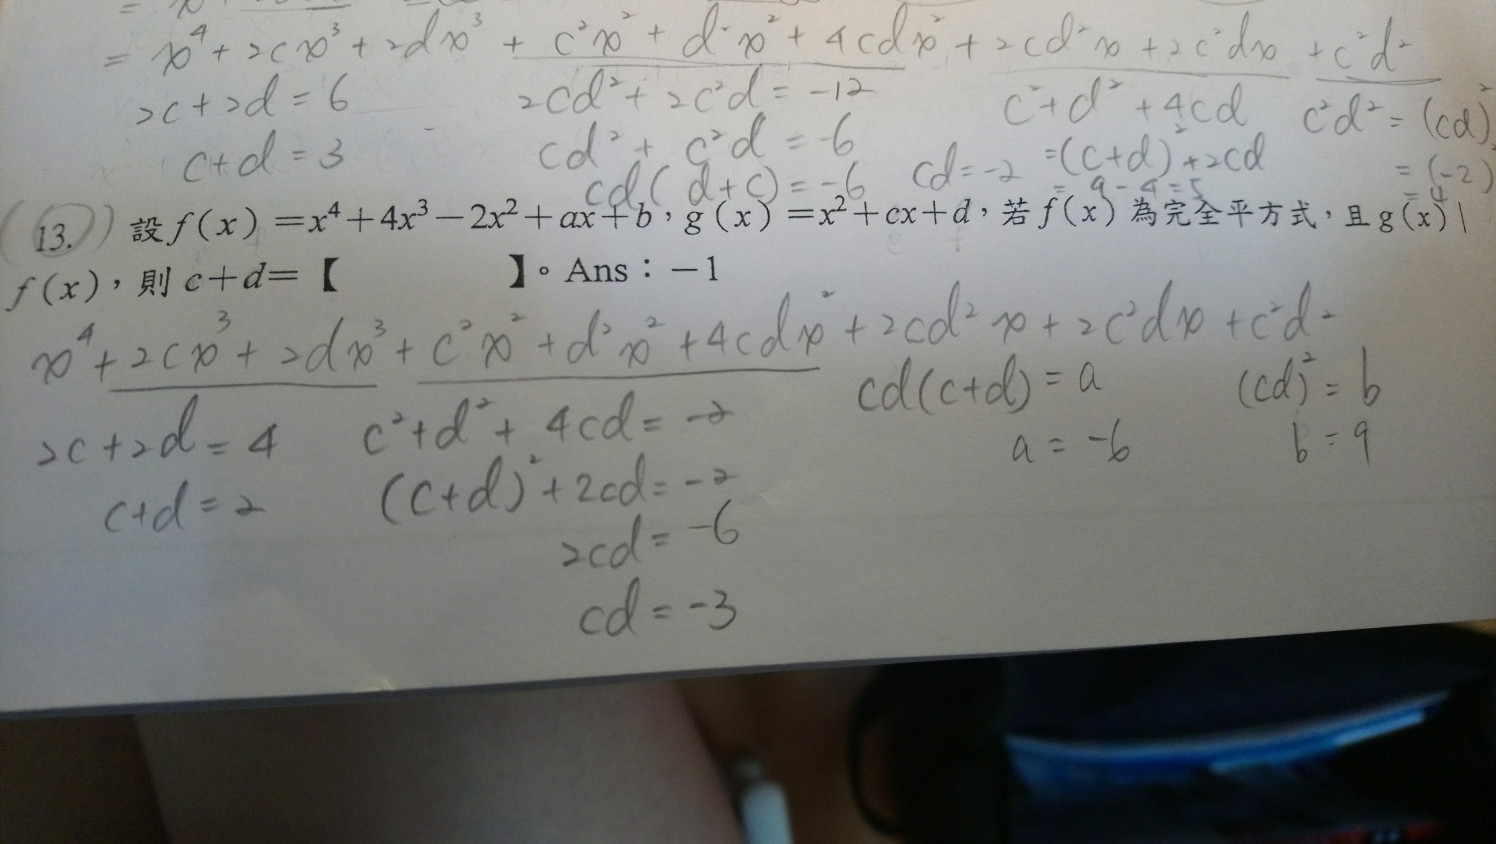 = x⁴ + 2cx³ + 2dx³ + c²x² + d²x² + 4cdx² + 2cd²x + 2c²dx + c²d²
2c+2d = 6 2cd² + 2c²d = -12 c²+d² + 4cd c²d² = (cd)²
c+d = 3 cd² + c²d = -6 cd = -2 =(c+d)²+2cd = (-2)²
cd(d+c) = -6 = 9-4=5 = 4
13. 設 f(x) =x⁴+4x³−2x²+ax+b,g(x)=x²+cx+d,若 f(x) 為完全平方式,且 g(x)|
f(x),則 c+d=【 】。Ans:−1
x⁴+2cx³+2dx³+c²x²+d²x²+4cdx²+2cd²x+2c²dx+c²d²
2c+2d = 4 c²+d²+4cd = -2 cd(c+d) = a (cd)² = b
c+d = 2 (c+d)²+2cd = -2 a = -6 b = 9
2cd = -6
cd = -3